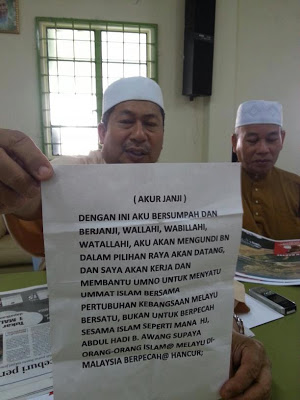 ( AKUR JANJI )
DENGAN INI AKU BERSUMPAH DAN
BERJANJI, WALLAHI, WABILLAHI,
WATALLAHI, AKU AKAN MENGUNDI BN
DALAM PILIHAN RAYA AKAN DATANG,
DAN SAYA AKAN KERJA DAN
MEMBANTU UMNO UNTUK MENYATU
UMMAT ISLAM BERSAMA
PERTUBUHAN KEBANGSAAN MELAYU
BERSATU, BUKAN UNTUK BERPECAH
SESAMA ISLAM SEPERTI MANA HJ,
ABDUL HADI B. AWANG SUPAYA
ORANG-ORANG ISLAM@ MELAYU DI-
MALAYSIA BERPECAH@ HANCUR;
ceburi pe